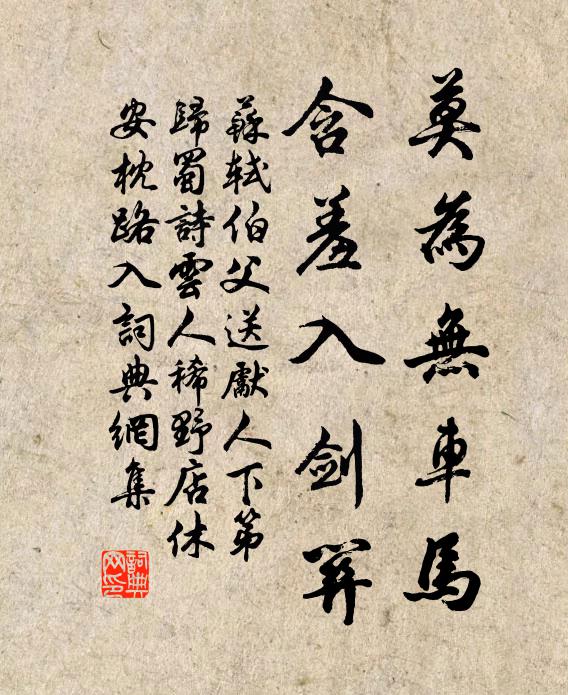 莫為無車馬
含羞入劍關
蘇軾伯父送獻人下第
歸蜀詩雲人稀野店休
安枕路入詞典網集
詞典網印